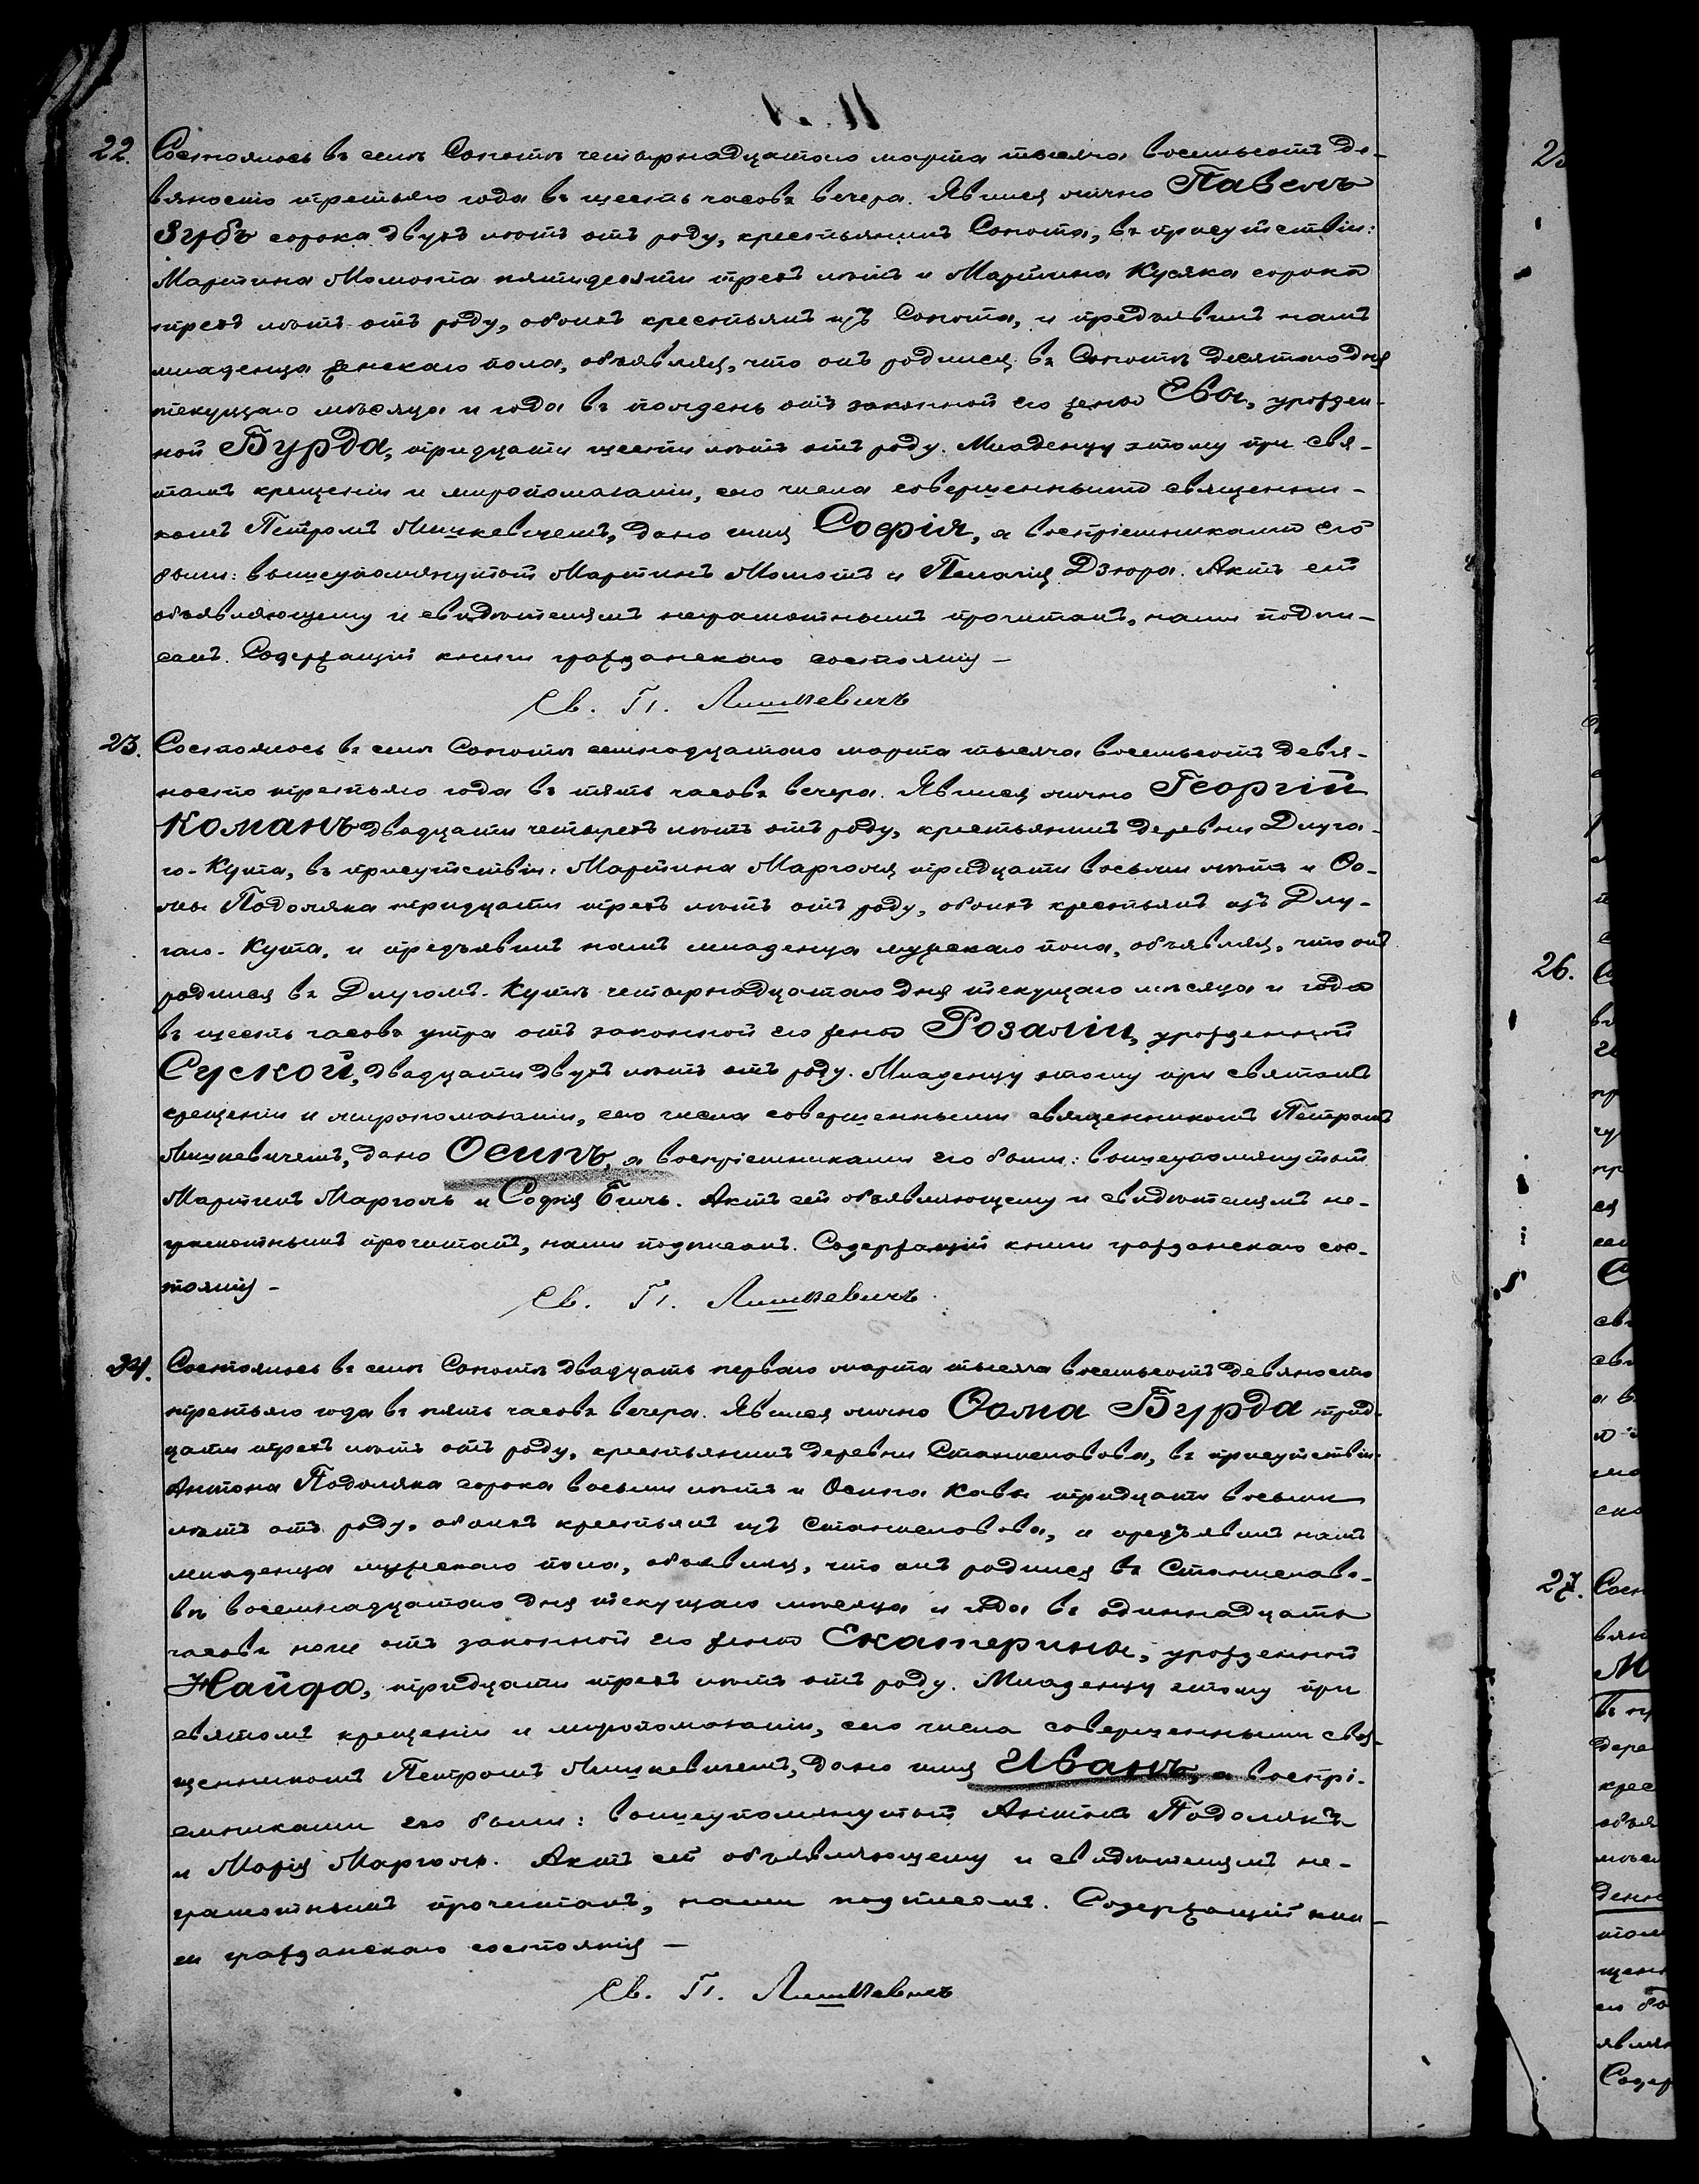 22. Состоялось въ селѣ Сопотѣ четырнадцатаго марта тысяча восемьсотъ де-
вяносто третьяго года въ шесть часовъ вечера. Явился лично Павелъ
Зубъ сорока двухъ лѣтъ отъ роду, крестьянинъ Сопота, въ присутствіи:
Мартина Момота пятидесяти трехъ лѣтъ и Мартина Кусяка сорока
трехъ лѣтъ отъ роду, обоихъ крестьянъ изъ Сопота, и предъявилъ намъ
младенца женскаго пола, объявляя, что онъ родился въ Сопотѣ десятаго дня
текущаго мѣсяца и года въ полдень отъ законной его жены Евы, урожден-
ной Бурда, тридцати шести лѣтъ отъ роду. Младенцу этому при свя-
томъ крещеніи и миропомазаніи, сего числа совершенныхъ священни-
комъ Петромъ Лишкевичемъ, дано имя Софія, а воспріемниками его
были: вышеупомянутый Мартинъ Момотъ и Пелагія Дзюра. Актъ сей
объявляющему и свидѣтелямъ неграмотнымъ прочитанъ, нами подпи-
санъ. Содержащій книги гражданскаго состоянія –
Св. П. Лишкевичъ
23. Состоялось въ селѣ Сопотѣ семнадцатаго марта тысяча восемьсотъ девя-
носто третьяго года въ пять часовъ вечера. Явился лично Георгій
Команъ двадцати четырехъ лѣтъ отъ роду, крестьянинъ деревни Длуга-
го-Кута, въ присутствіи: Мартина Марголя тридцати восьми лѣтъ и Ѳо-
мы Подоляка тридцати трехъ лѣтъ отъ роду, обоихъ крестьянъ изъ Длу-
гаго-Кута, и предъявилъ намъ младенца мужскаго пола, объявляя, что онъ
родился въ Длугомъ-Кутѣ четырнадцатаго дня текущаго мѣсяца и года
въ шесть часовъ утра отъ законной его жены Розаліи, урожденной
Суской, двадцати двухъ лѣтъ отъ роду. Младенцу этому при святомъ
крещеніи и миропомазаніи, сего числа совершенными священникомъ Петромъ
Лишкевичемъ, дано Осипъ, а воспріемниками его были: вышеупомянутый
Мартинъ Марголь и Софія Бичъ. Актъ сей объявляющему и свидѣтелямъ не-
грамотнымъ прочитанъ, нами подписанъ. Содержащій книги гражданскаго сос-
тоянія –
Св. П. Лишкевичъ
24. Состоялось въ селѣ Сопотѣ двадцать перваго марта тысяча восемьсотъ девяносто
третьяго года въ пять часовъ вечера. Явился лично Ѳома Бурда трид-
цати трехъ лѣтъ отъ роду, крестьянинъ деревни Станиславова, въ присутствіи:
Антона Подоляка сорока восьми лѣтъ и Осипа Кавы тридцати восьми
лѣтъ отъ роду, обоихъ крестьянъ изъ Станиславова, и предъявилъ намъ
младенца мужскаго пола, объявляя, что онъ родился въ Станиславо-
вѣ восемнадцатаго дня текущаго мѣсяца и года въ одиннадцать
часовъ ночи отъ законной его жены Екатерины, урожденной
Найда, тридцати трехъ лѣтъ отъ роду. Младенцу етому при
святомъ крещеніи и миропомазаніи, сего числа совершенными свя-
щенникомъ Петромъ Лишкевичемъ, дано имя Иванъ, а воспрі-
емниками его были: вышеупомянутый Антонъ Подолякъ
и Марія Марголь. Актъ сей объявляющему и свидѣтелямъ не-
грамотнымъ прочитанъ, нами подписанъ. Содержащій кни-
ги гражданскаго состоянія –
Св. П. Лишкевичъ
26.
27.